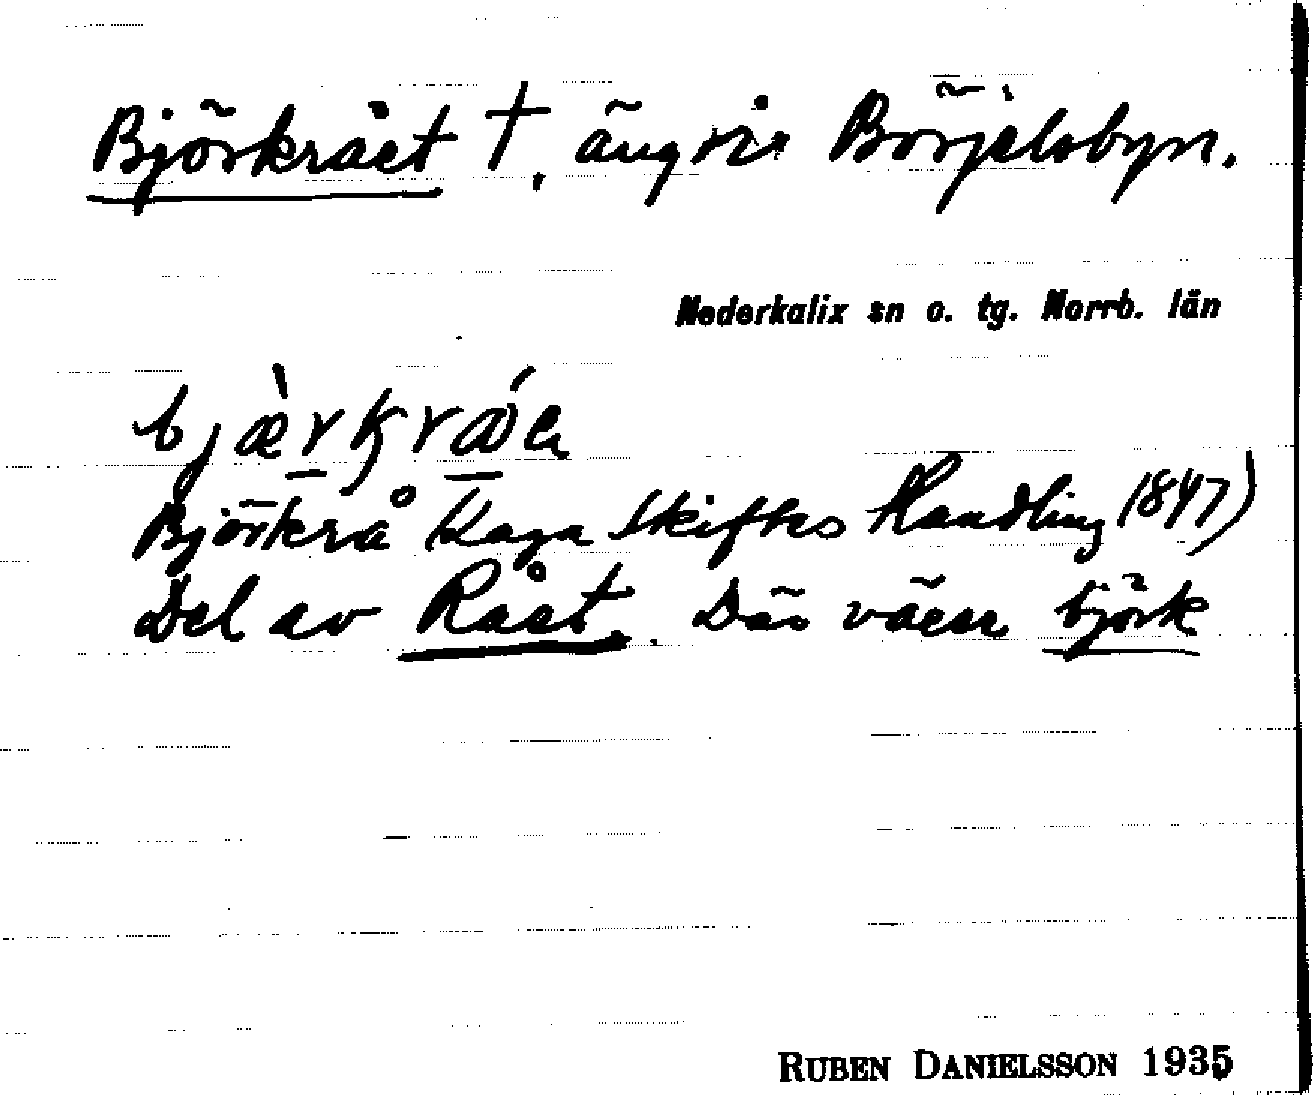 Björkrået †, ängsvis Börjelsbyn.
Nederkalix sn o. tg. Norrb. län
Björkrå Laga Skiftes Handling 1847)
Del av Rået. Där växer björk
RUBEN DANIELSSON 1935